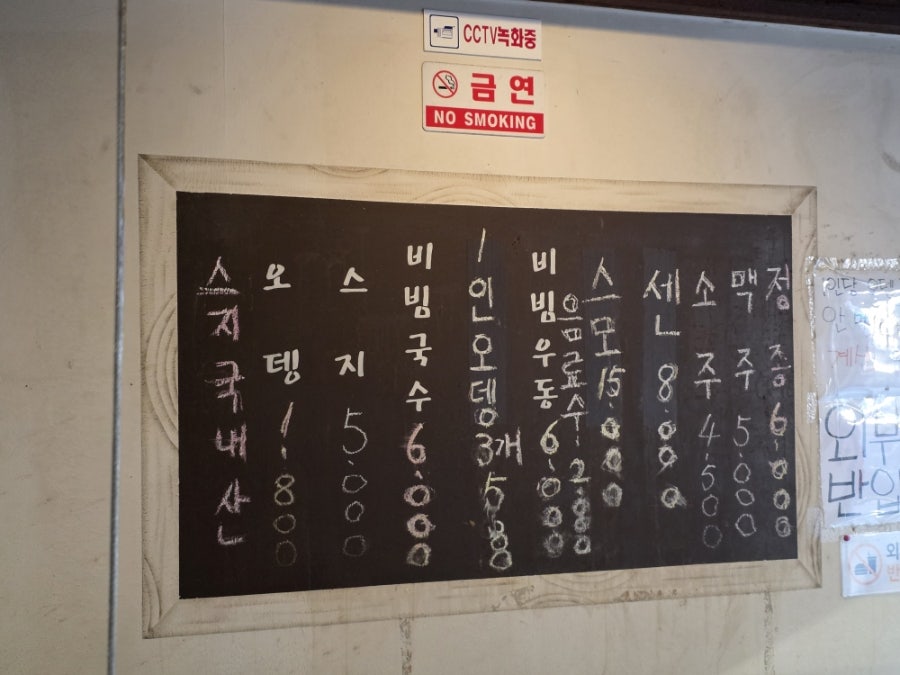 CCTV녹화중
금연
NO SMOKING
스지국내산
오뎅 1.800
스지 5.000
비빔국수 6.000
1인오뎅3개
비빔우동 6.000
음료수.2.000
스모 15.000
세느 8.000
소주 4.500
맥주 5.000
정종 6.000
외부
반입